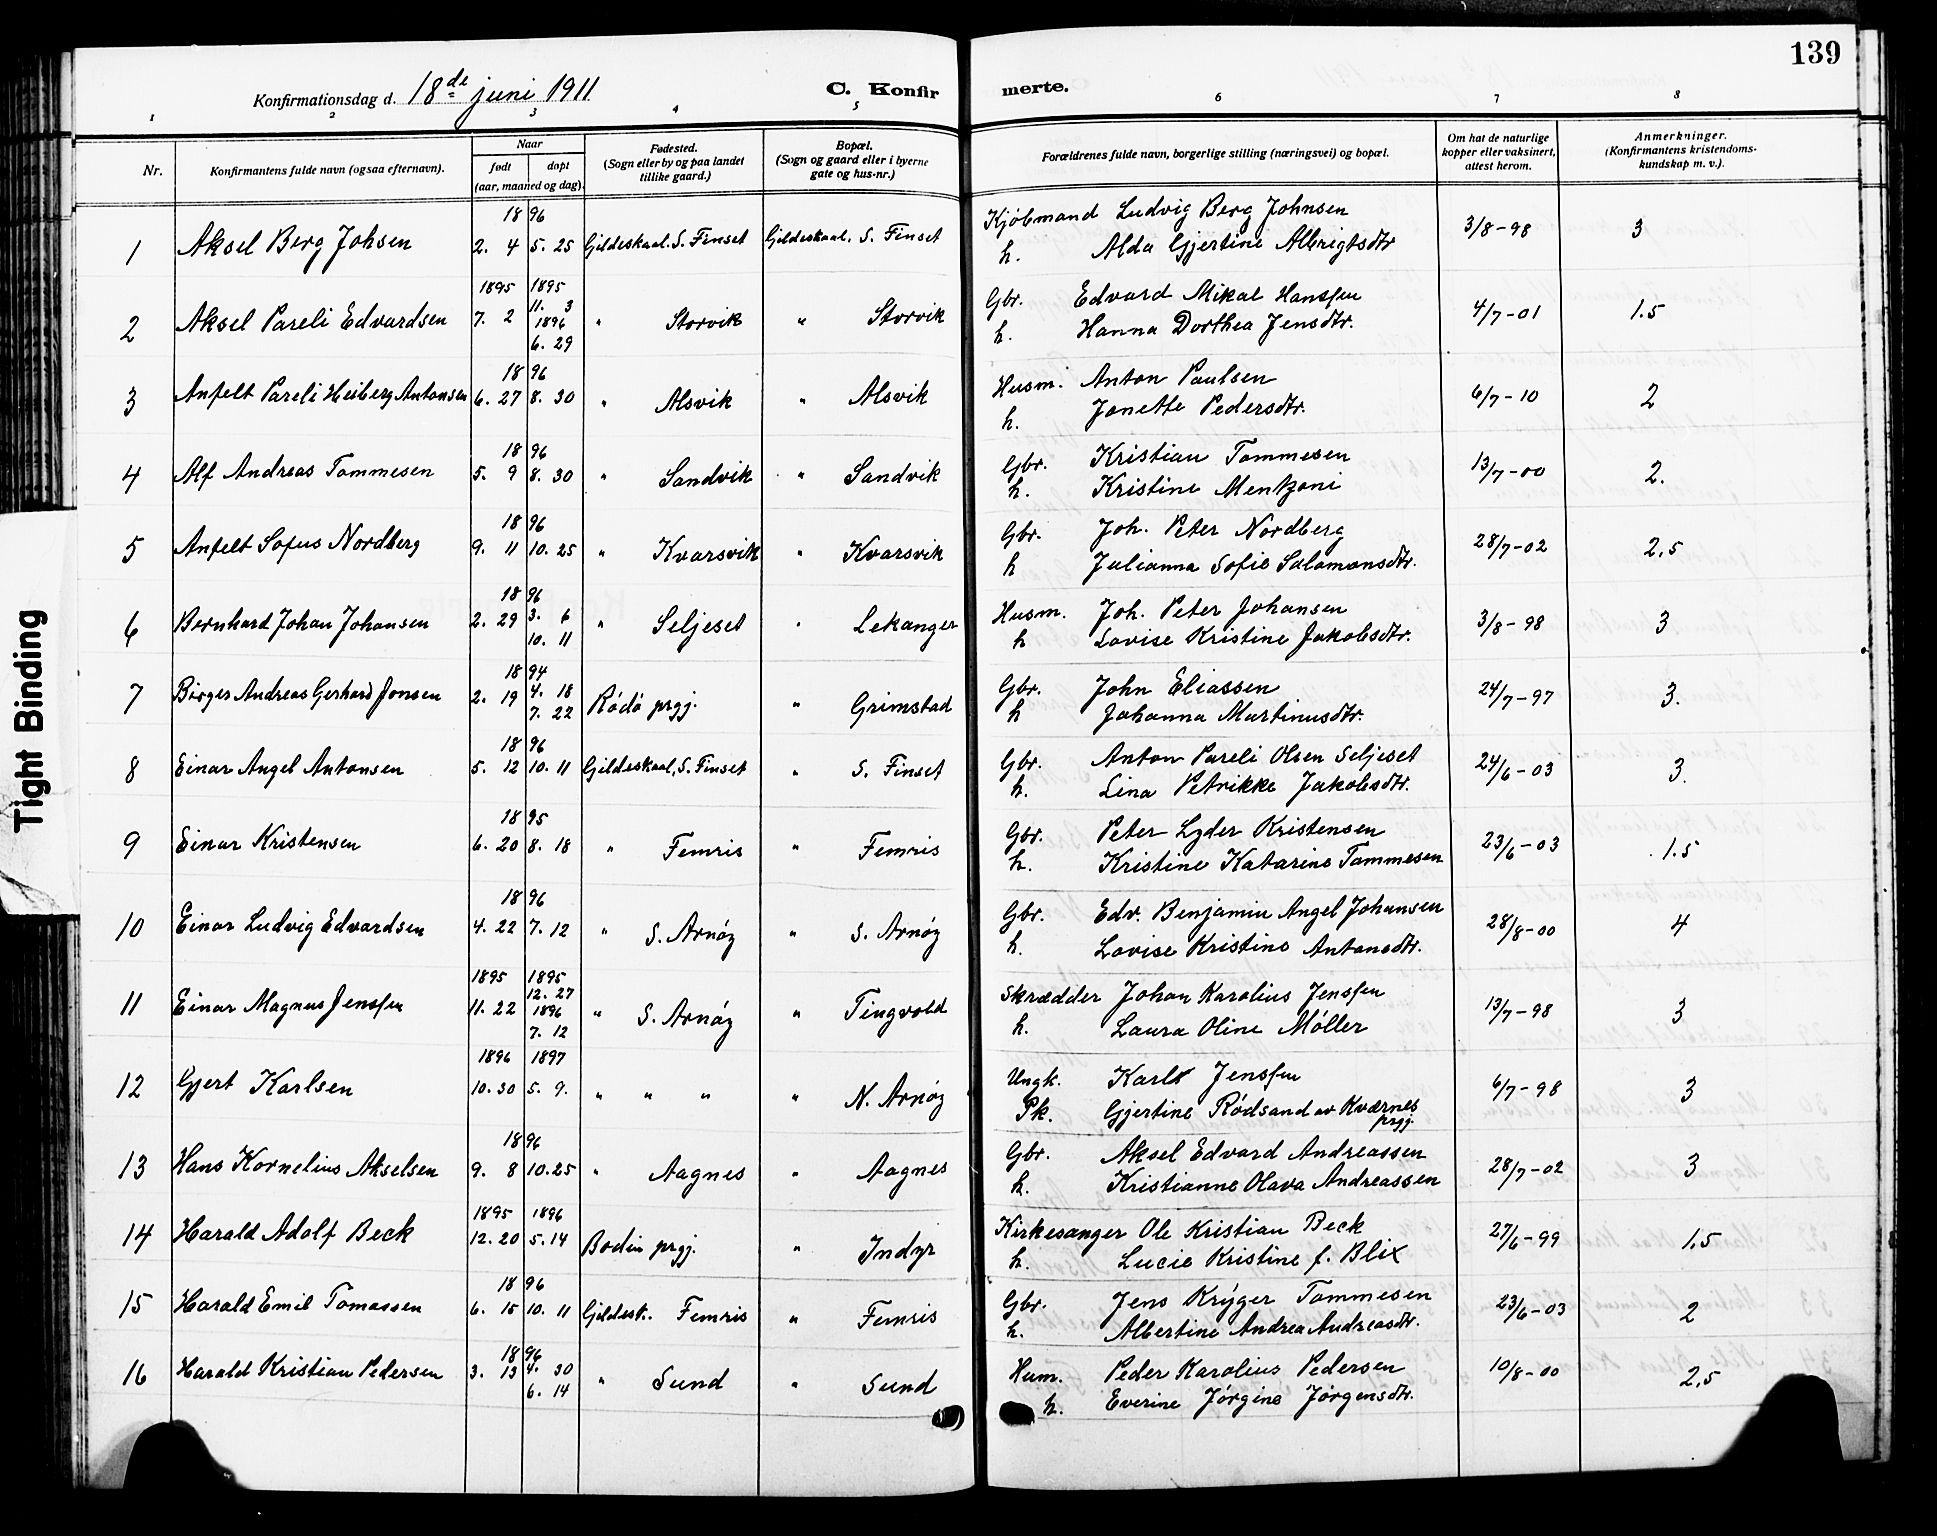 139
Konfirmationsdag d. 18de juni 1911 C. Konfirmerte.
1 2 3 4 5 6 7 8
Nr. Konfirmantens fulde navn (ogsaa efternavn). Naar født døpt (aar, maaned og dag). Fødested. (Sogn eller by og paa landet tillike gaard.) Bopæl. (Sogn og gaard eller i byerne gate og hus-nr.) Forældrenes fulde navn, borgerlige stilling (næringsvei) og bopæl. Om hat de naturlige kopper eller vaksinert, attest herom. Anmerkninger. (Konfirmantens kristendomskundskap m. v.).
1 Aksel Berg Johsen 1896 2. 4 5. 25 Gildeskaal. S. Finset Gildeskaal. S. Finset Kjøbmand Ludvig Berg Johnsen 3/8-98 3
h. Alda Gjertine Albrigtsdtr
2 Aksel Pareli Edvardsen 1895 7. 2 1895 11. 3 1896 6. 29 " Storvik " Storvik Gbr. Edvard Mikal Hanssen 4/7-01 1.5
h. Hanna Dorthea Jensdtr.
3 Anfelt Pareli Heiberg Antonsen 1896 6. 27 8. 30 " Alsvik " Alsvik Husm. Anton Paulsen 6/7-10 2
h. Jonette Pedersdtr.
4 Alf Andreas Tommesen 1896 5. 9 8. 30 " Sandvik " Sandvik Gbr. Kristian Tommesen 13/7-00 2.
h. Kristine Mentzoni
5 Anfelt Sofus Nordberg 1896 9. 11 10. 25 " Kvarsvik " Kvarsvik Gbr. Joh. Peter Nordberg 28/7-02 2,5
h Julianna Sofie Salomonsdtr.
6 Bernhard Johan Johansen 1896 2. 29 3. 6 10. 11 " Seljeset " Lekanger Husm. Joh. Peter Johansen 3/8-98 3
h Lovise Kristine Jakobsdtr.
7 Birger Andreas Gerhard Jonsen 1894 2. 19 4. 18 7. 22 Rødø prgj. " Grimstad Gbr. John Eliassen 24/7-97 3.
h Johanna Martinusdtr.
8 Einar Angel Antonsen 1896 5. 12 10. 11 Gildeskaal, S. Finset " S. Finset Gbr. Anton Pareli Olsen Seljeset 24/6-03 3.
h. Lina Petrikke Jakobsdtr.
9 Einar Kristensen 1895 6. 20 8. 18 " Femris " Femris Gbr. Peter Lyder Kristensen 23/6-03 1.5
h. Kristine Katarine Tommesen
10 Einar Ludvig Edvardsen 1896 4. 22 7. 12 " S. Arnøy " S. Arnøy Gbr. Edv. Benjamin Angel Johansen 28/8-00 4
h. Lovise Kristine Antonsdtr.
11 Einar Magnus Jenssen 1895 11. 22 1895 12. 27 1896 7. 12 " S. Arnøy " Tingvold Skrædder Johan Karolius Jenssen 13/7-98 3
h. Laura Oline Møller
12 Gjert Karlsen 1896 10. 30 1897 5. 9. " " " " N. Arnøy Ungk. Karl Jenssen 6/7-98 3
Pk. Gjertine Rødsand av Kværnes prgj.
13 Hans Kornelius Akselsen 1896 9. 8 10. 25 " Aagnes " Aagnes Gbr. Aksel Edvard Andreassen 28/7-02 3
h. Kristianne Olava Andreassen
14 Harald Adolf Beck 1895 12. 20 1896 5. 14 Bodin prgj. " Indyr Kirkesanger Ole Kristian Beck 27/6-99 1,5
h. Lucie Kristine f. Blix
15 Harald Emil Tomassen 1896 6. 15 10. 11 Gildesk. Femris " Femris Gbr. Jens Krÿger Tommesen 23/6-03 2
h. Albertine Andrea Andreasdtr.
16 Harald Kristian Pedersen 1896 3. 13 4. 30 6. 14 " Sund " Sund Hum. Peder Karolius Pedersen 10/8-00 2,5
h. Everine Jørgine Jørgensdtr.
Tight Binding